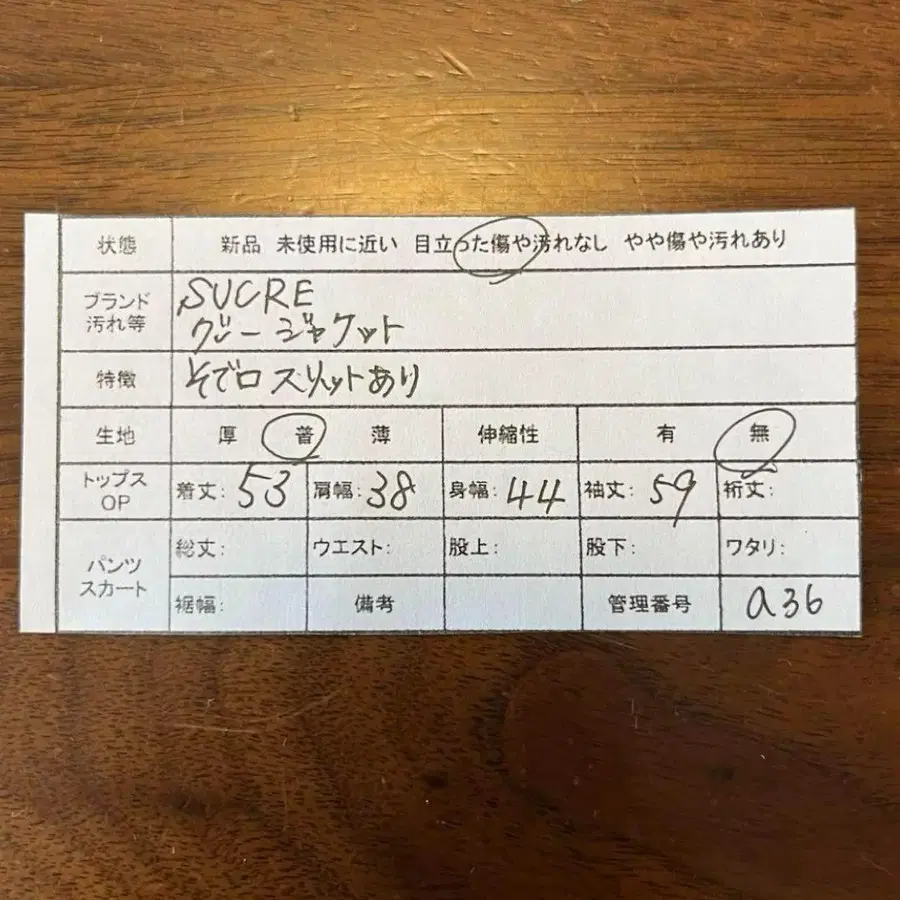 状態 新品 未使用に近い 目立った傷や汚れなし やや傷や汚れあり
ブランド 汚れ等 SUCRE
グレー ジャケット
特徴 そで口 スリットあり
生地 厚 普 薄 伸縮性 有 無
トップス OP 着丈: 53 肩幅: 38 身幅: 44 袖丈: 59 裄丈:
パンツ スカート 総丈: ウエスト: 股上: 股下: ワタリ:
裾幅: 備考 管理番号 a36